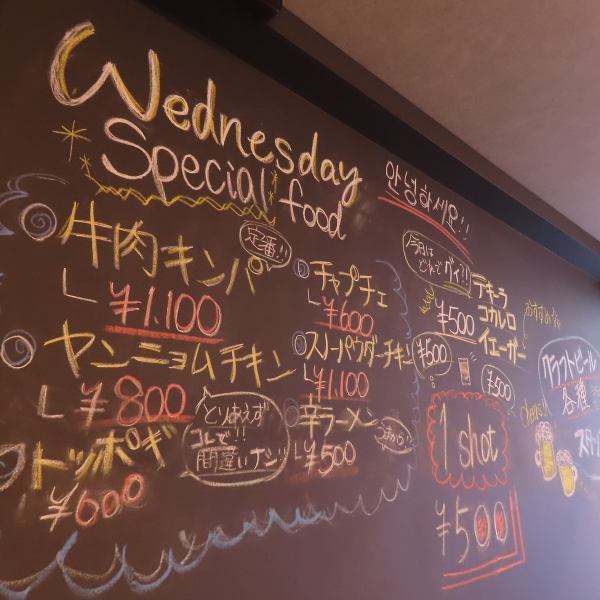 Wednesday
Special food
牛肉キンパ
定番!!
¥1,100
ヤンニョムチキン
¥800
とりあえず
コレで!!
間違いナシ!!
トッポギ
¥600
チャプチェ
¥600
スノーパウダーチキン
¥1,100
辛ラーメン
¥500
안녕하세요!!
今日は
テキーラ
コカレロ
イェーガー
¥500
¥500
¥500
1 shot
¥500
おすすめ
Cheers!!
クラフトビール
各種